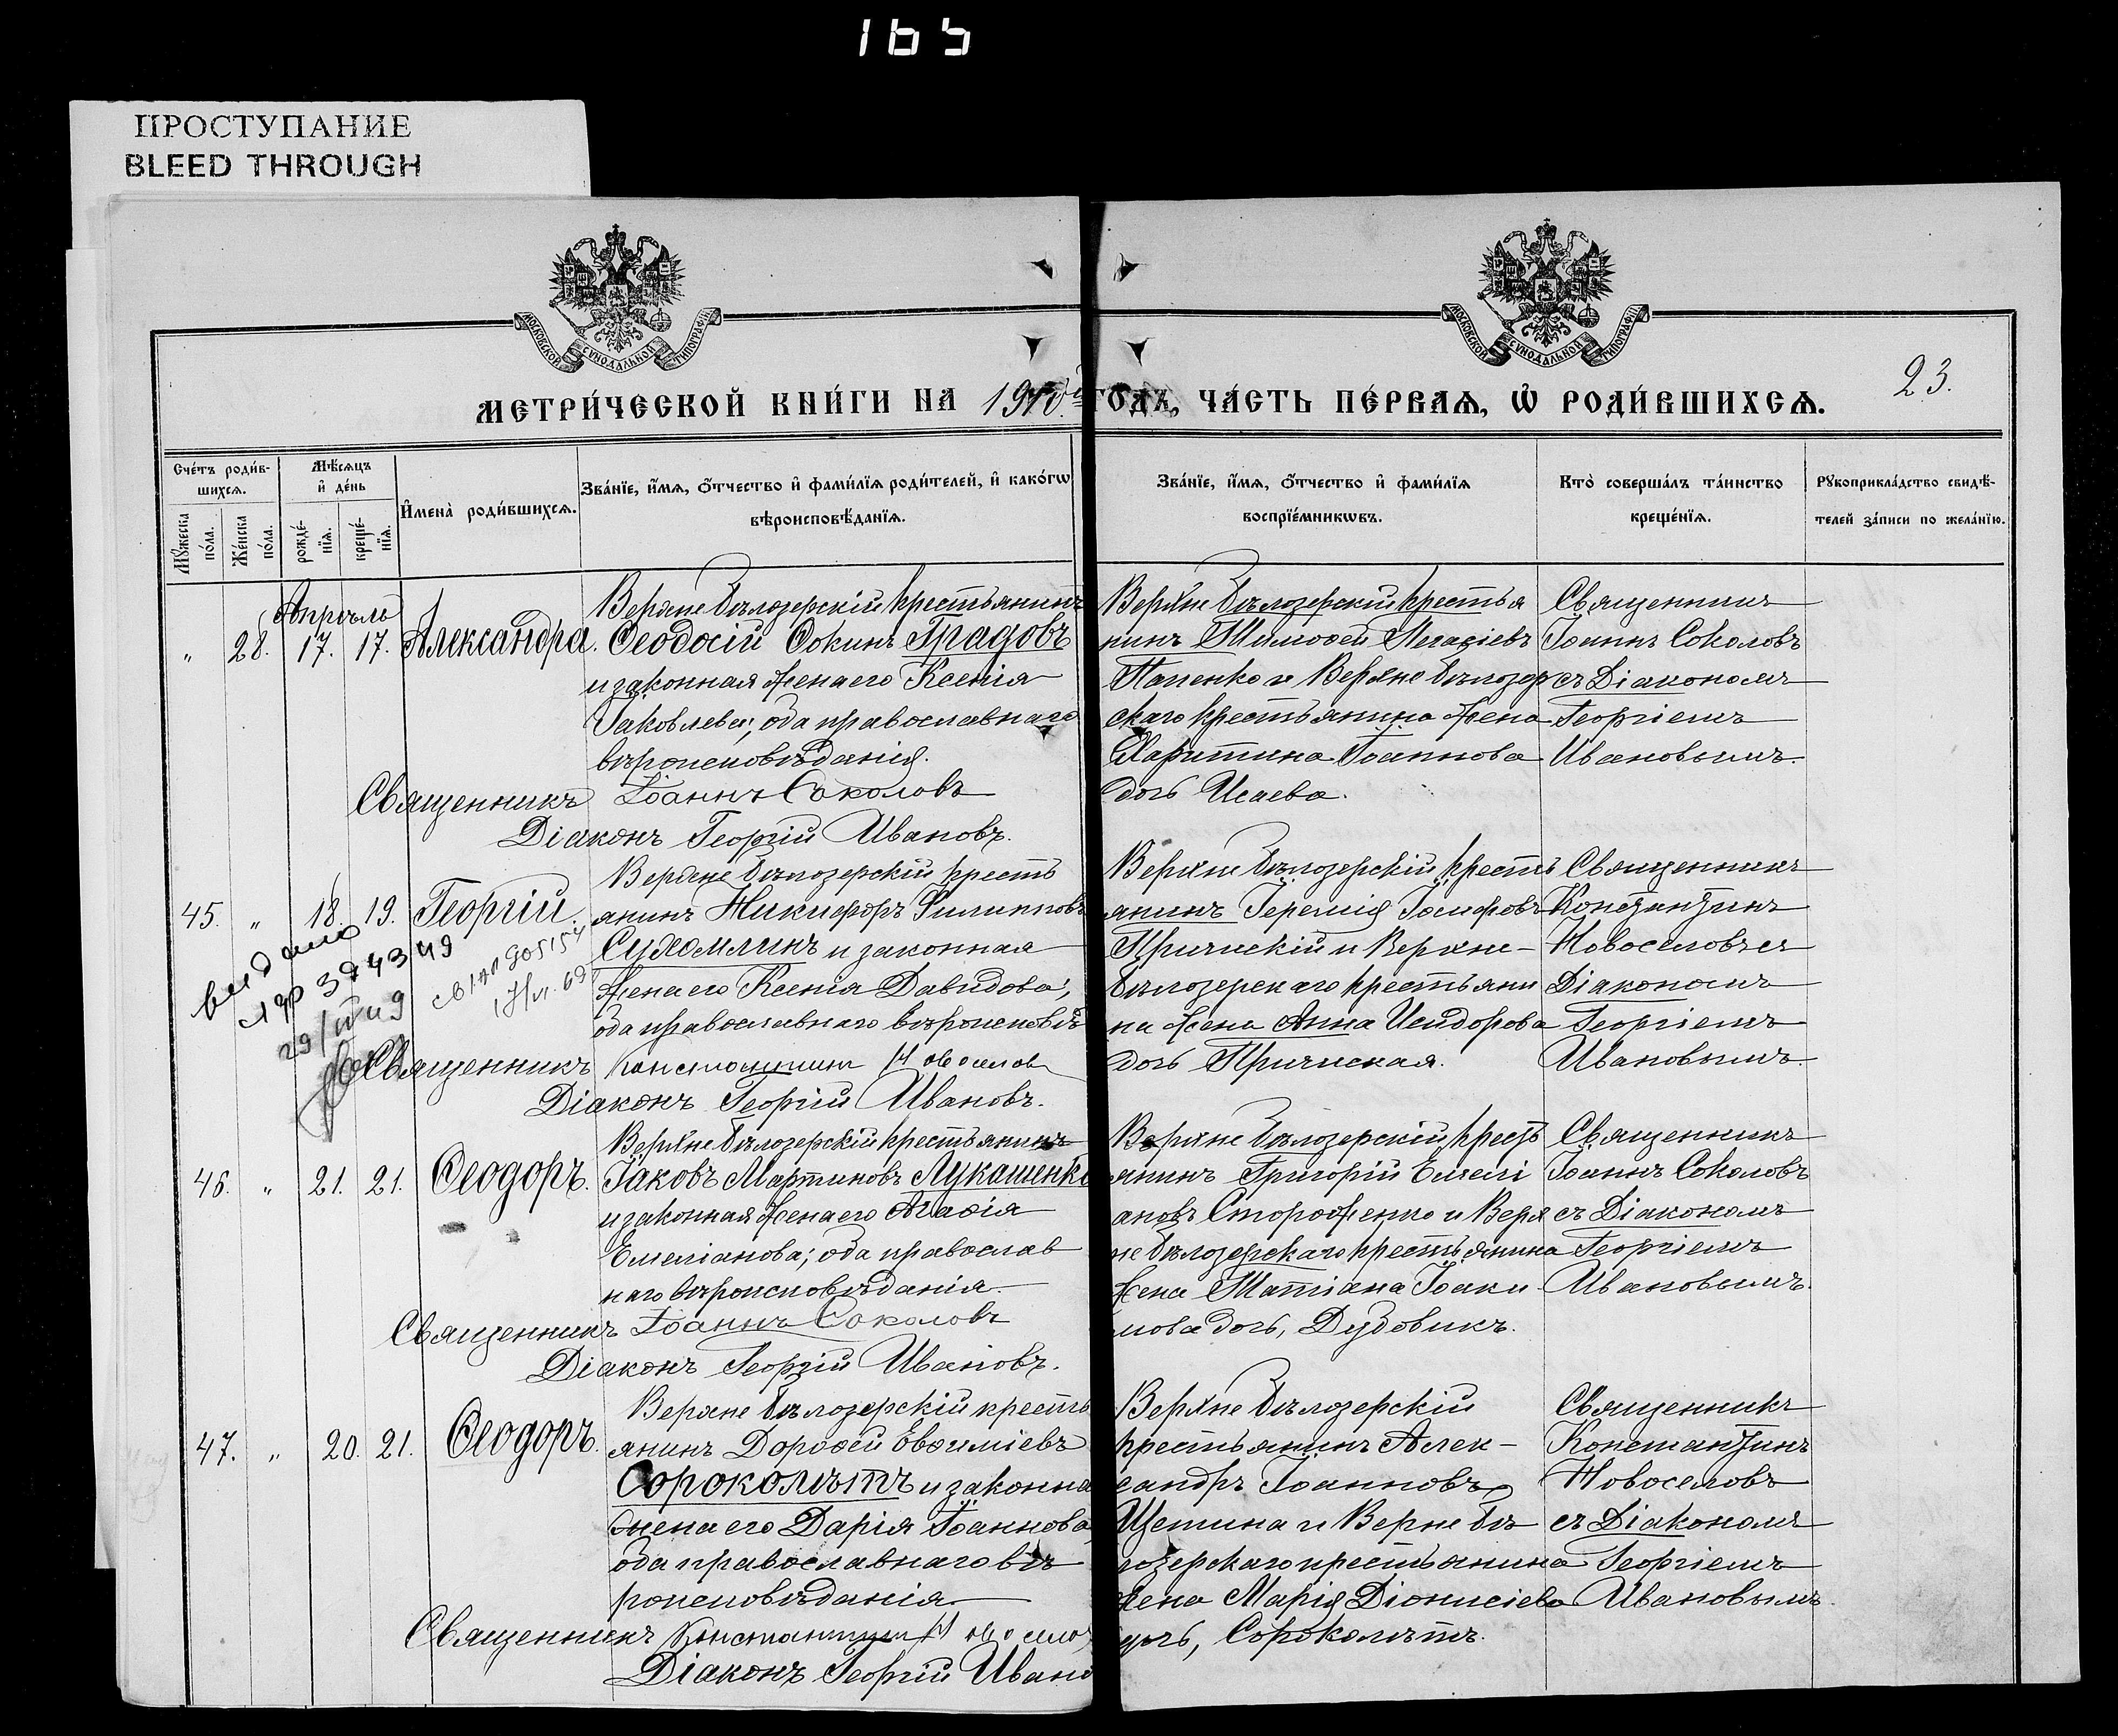 165
ПРОСТУПАНИЕ
BLEED THROUGH
МОСКОВСКОЙ СѴНОДАЛЬНОЙ ТИПОГРАФІИ
МОСКОВСКОЙ СѴНОДАЛЬНОЙ ТИПОГРАФІИ
23.
МЕТРИ́ЧЕСКОЙ КНИ́ГИ НА 1910й ГОДЪ, ЧА́СТЬ ПЕ́РВАѦ, Ѡ҆ РОДИ́ВШИХСѦ.
Сче́тъ роди́в-
шихсѧ.
Мꙋ́жеска по́ла.
Же́нска по́ла.
Мѣ́сѧцъ
и҆ де́нь
рожде́-нїѧ.
креще́-нїѧ.
И҆мена̀ роди́вшихсѧ.
Зва́нїе, и҆́мѧ, ѻ҆́тчество и҆ фами́лїѧ роди́телей, и҆ како́гѡ
вѣроисповѣ́данїѧ.
Зва́нїе, и҆́мѧ, ѻ҆́тчество и҆ фами́лїѧ
воспрїе́мникѡвъ.
Кто̀ соверша́лъ та́инство
креще́нїѧ.
Рꙋкоприкла́дство свидѣ́-
телей за́писи по жела́нїю.
Апрѣль
„ 28. 17. 17. Александра.
Верхнебѣлозерскій крестьянинъ
Ѳеодосій Ѳокинъ Градовъ
и законная жена его Ксенія
Іаковлева; оба православнаго
вѣроисповѣданія.
Священникъ Іоаннъ Соколовъ
Діаконъ Георгій Ивановъ.
Верхне бѣлозерскій крестья
нинъ Тимоѳей
Папенко и Верхне бѣлозер
скаго крестьянина жена
Харитина Іоаннова
дочь Исаева.
Священникъ
Іоаннъ Соколовъ
съ Діакономъ
Георгіемъ
Ивановымъ.
45. „ 18. 19. Георгій.
выдано
29/
Верхне бѣлозерскій кресть
янинъ Никифоръ Филипповъ
Сухомлинъ и законная
жена его Ксенія Давидова;
оба православнаго вѣроисповѣд
Священникъ Константинъ Новоселовъ
Діаконъ Георгій Ивановъ.
Верхне бѣлозерскій кресть
янинъ Іеремія Іосифовъ
Причискій и Верхне-
бѣлозерскаго крестьяни
на жена Анна Исидорова
дочь Причиская.
Священникъ
Константинъ
Новоселовъ съ
Діакономъ
Георгіемъ
Ивановымъ.
46. „ 21. 21. Ѳеодоръ.
Верхне бѣлозерскій крестьянинъ
Іаковъ Мартиновъ Лукашенко
и законная жена его Агаѳія
Емеліанова; оба православ
наго вѣроисповѣданія.
Священникъ Іоаннъ Соколовъ
Діаконъ Георгій Ивановъ.
Верхне бѣлозерскій кресть
янинъ Григорій Емелі
ановъ Стороженко и Верх
не бѣлозерскаго крестьянина
жена Татіана Іоаки
мова дочь, Дудовикъ.
Священникъ
Іоаннъ Соколовъ
съ Діакономъ
Георгіемъ
Ивановымъ.
47. „ 20. 21. Ѳеодоръ.
Верхне бѣлозерскій кресть
янинъ Дороѳей Евѳиміевъ
Сороколѣтъ и законна
жена его Дарія Іоаннова
оба православнаго вѣ
роисповѣданія.
Священникъ Константинъ Новосело
Діаконъ Георгій Ивано
Верхне бѣлозерскій
крестьянинъ Алек-
сандръ Іоанновъ
Щетина и Верхне бѣ
лозерскаго крестьянина
жена Марія Діонисіева
дочь, Сороколѣтъ.
Священникъ
Константинъ
Новоселовъ
съ Діакономъ
Георгіемъ
Ивановымъ.